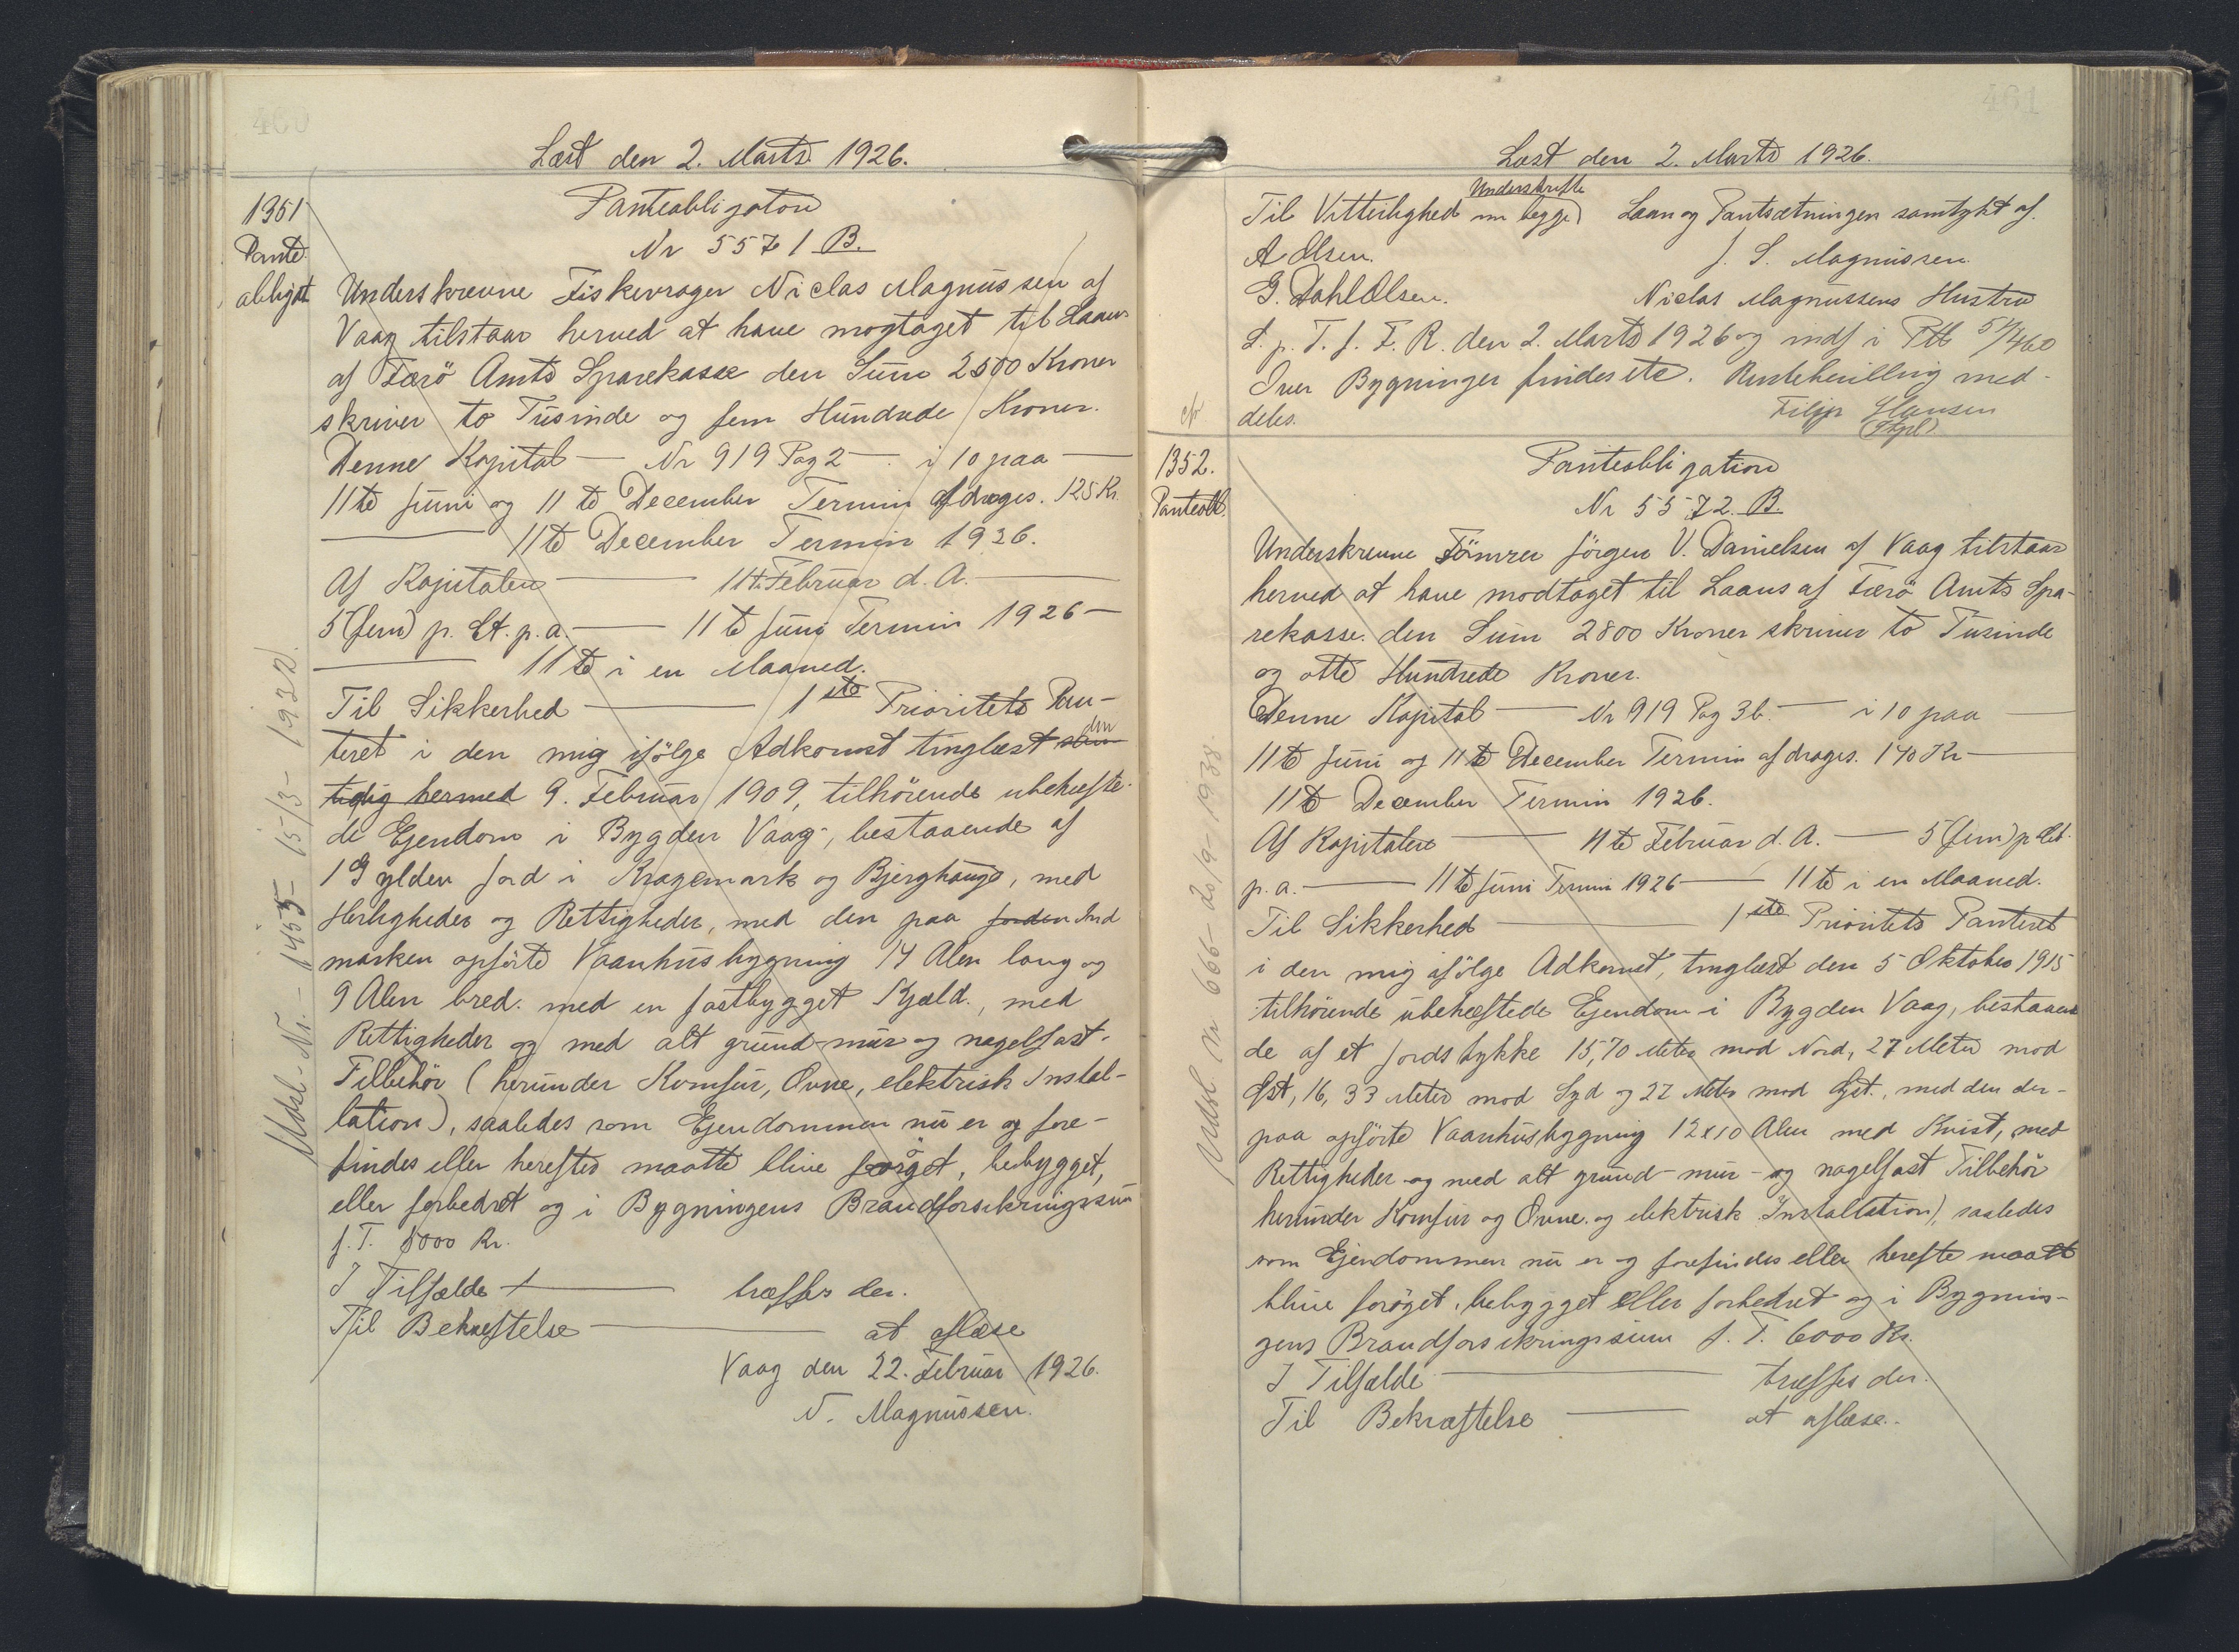 460
Læst den 2. Marts 1926.
1351
Pante
obligat
Panteobligation
Nr 5571 B.
Underskrevne Fiskevrager Niclas Magnussen af
Vaag tilstaar herved at have modtaget til Laans
af Færö Amts Sparekasse den Sum 2500 Kroner
skriver to Tusinde og fem Hundrede Kroner.
Denne Kapital — Nr 919 Pag 2 — i 10 paa —
11te Juni og 11te December Termin afdrages. 125 Kr.
— 11te December Termin 1926.
Af Kapitalen — 11te Februar d. A. —
5 (fem) p. Ct. p. a. — 11te Juni Termin 1926 —
— 11te i en Maaned.
Til Sikkerhed — 1ste Prioritets Pan-
teret i den mig ifölge Adkomst tinglæst sam den
tidig hermed 9. Februar 1909, tilhörende ubehæfte-
de Ejendom i Bygden Vaag, bestaaende af
1 Gylden Jord i Kragemark og Bjerghauge, med
Herligheder og Rettigheder, med den paa Jorden Ind
marken opförte Vaanhusbygning 14 Alen lang og
9 Alen bred. med en fastbygget Kjæld., med
Rettigheder og med alt grund-mur og nagelfast-
Tilbehör (herunder Komfur, Ovne, elektrisk Instal-
lation), saaledes som Ejendommen nu er og fore-
findes eller herefter maatte blive foröget, bebygget,
eller forbedret og i Bygningens Brandforsikringssum
f. T. 5000 Kr.
I Tilfælde — træffes der.
Til Bekræftelse — at aflæse
Vaag den 22. Februar 1926.
N. Magnussen.
Udsl. Nr. - 1455 - 15/3 - 1932.
461
Læst den 2. Marts 1926.
Til Vitterlighed Underskrifte
om begge) Laan og Pantsætningen samtykt af.
A Olsen. J. S. Magnussen
G. Dahl Olsen. Niclas Magnussens Hustru
L. p. T. f. F. R. den 2. Marts 1926 og indf i Ptb 51/460
Over Bygninger findes etc. Rentebevilling med-
deles. Filip Hansen
(Fgl).
cfr
1352.
Panteobl.
Panteobligation
Nr 5572. B.
Underskrevne Tömrer Jörgen V. Danielsen af Vaag tilstaar
herved at have modtaget til Laans af Færö Amts Spa-
rekasse. den Sum 2800 Kroner skriver to Tusinde
og otte Hundrede Kroner.
Denne Kapital — Nr 919 Pag 3b. — i 10 paa —
11te Juni og 11te December Termin afdrages. 140 Kr —
11te December Termin 1926.
Af Kapitalen — 11te Februar d. A. — 5 (fem) p Ct.
p. a. — 11te Juni Termin 1926 — 11te i en Maaned.
Til Sikkerhed — 1ste Prioritets Panteret
i den mig ifölge Adkomst, tinglæst den 5 Oktober 1915
tilhörende ubehæftede Ejendom i Bygden Vaag, bestaaen
de af et Jordstykke 15,70 Meter mod Nord, 27 Meter mod
Öst, 16,33 Meter mod Syd og 22 Meter mod Öst., med den der-
paa opförte Vaanhusbygning 12x10 Alen med Kvist, med
Rettigheder og med alt grund- mur- og nagelfast Tilbehör
herunder Komfur og Ovne. og elektrisk Installation), saaledes
som Ejendommen nu er og forefindes eller herefte maatt
blive foröget, bebygget eller forbedret og i Bygnin-
gens Brandforsikringssum f. T. 6000 Kr.
I Tilfælde — træffes der.
Til Bekræftelse — at aflæse.
Udsl Nr 666 - 20/9 - 1938.